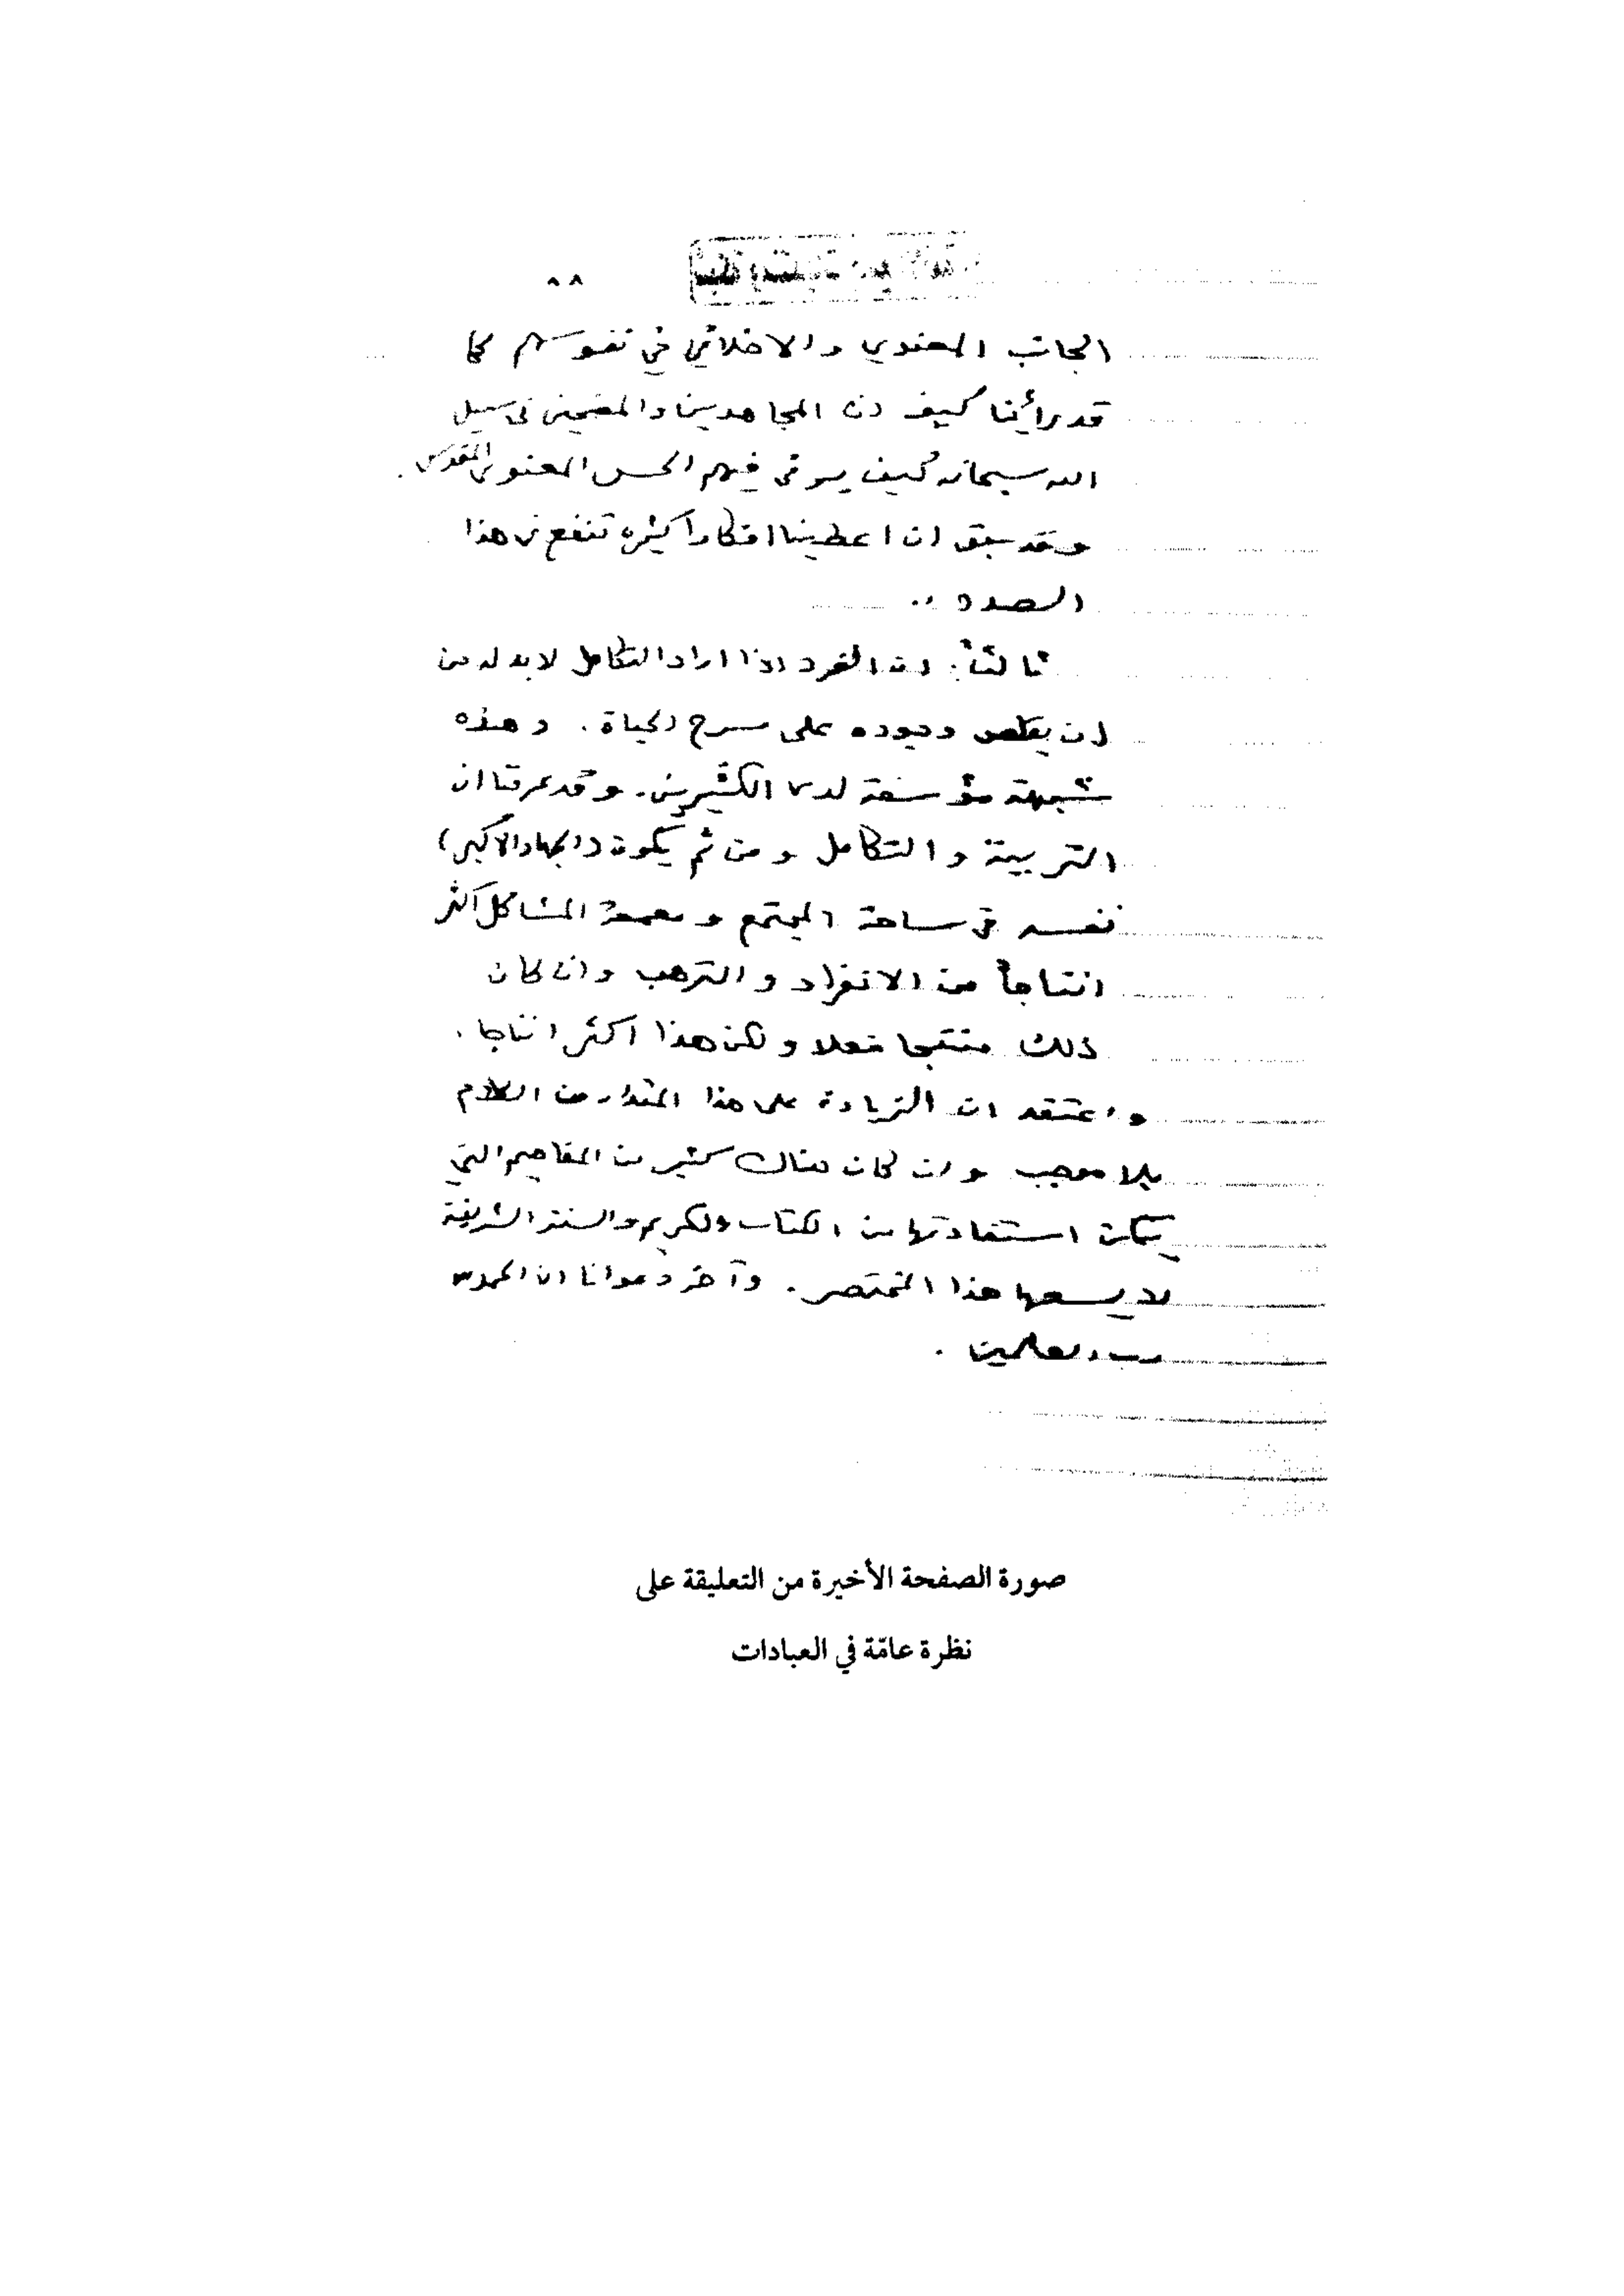 الجانب المعنوي والاخلاقي في نفوسهم كما
قد رأينا كيف ان المجاهدين والمضحين في سبيل
الله سبحانه كيف يرقى فيهم الحس المعنوي المقدس .
وقد سبق ان اعطينا افكاراً كثيره تنفع في هذا
الصدد ..
ثالثاً: ان الفرد اذا اراد التكامل لا بد له من
ان يقلص وجوده على مسرح الحياة . وهذه
شبهة مؤسفة لدى الكثيرين . وقد عرفنا ان
التربية و التكامل و من ثم يكون (الجهاد الاكبر)
نفسه في ساحة المجتمع و معمعة المشاكل اكثر
انتاجاً من الانفراد و الترهب وان كان
ذلك منتجا فعلا و لكن هذا اكثر انتاجا .
واعتقد ان الزيادة على هذا المقدار من الكلام
بلا موجب و ان كان هناك كثير من المفاهيم التي
يمكن استفادتها من الكتاب الكريم والسنة الشريفة
لا يسعها هذا المختصر . وآخر دعوانا ان الحمد لله
رب العالمين .
صورة الصفحة الأخيرة من التعليقة على
نظرة عامّة في العبادات